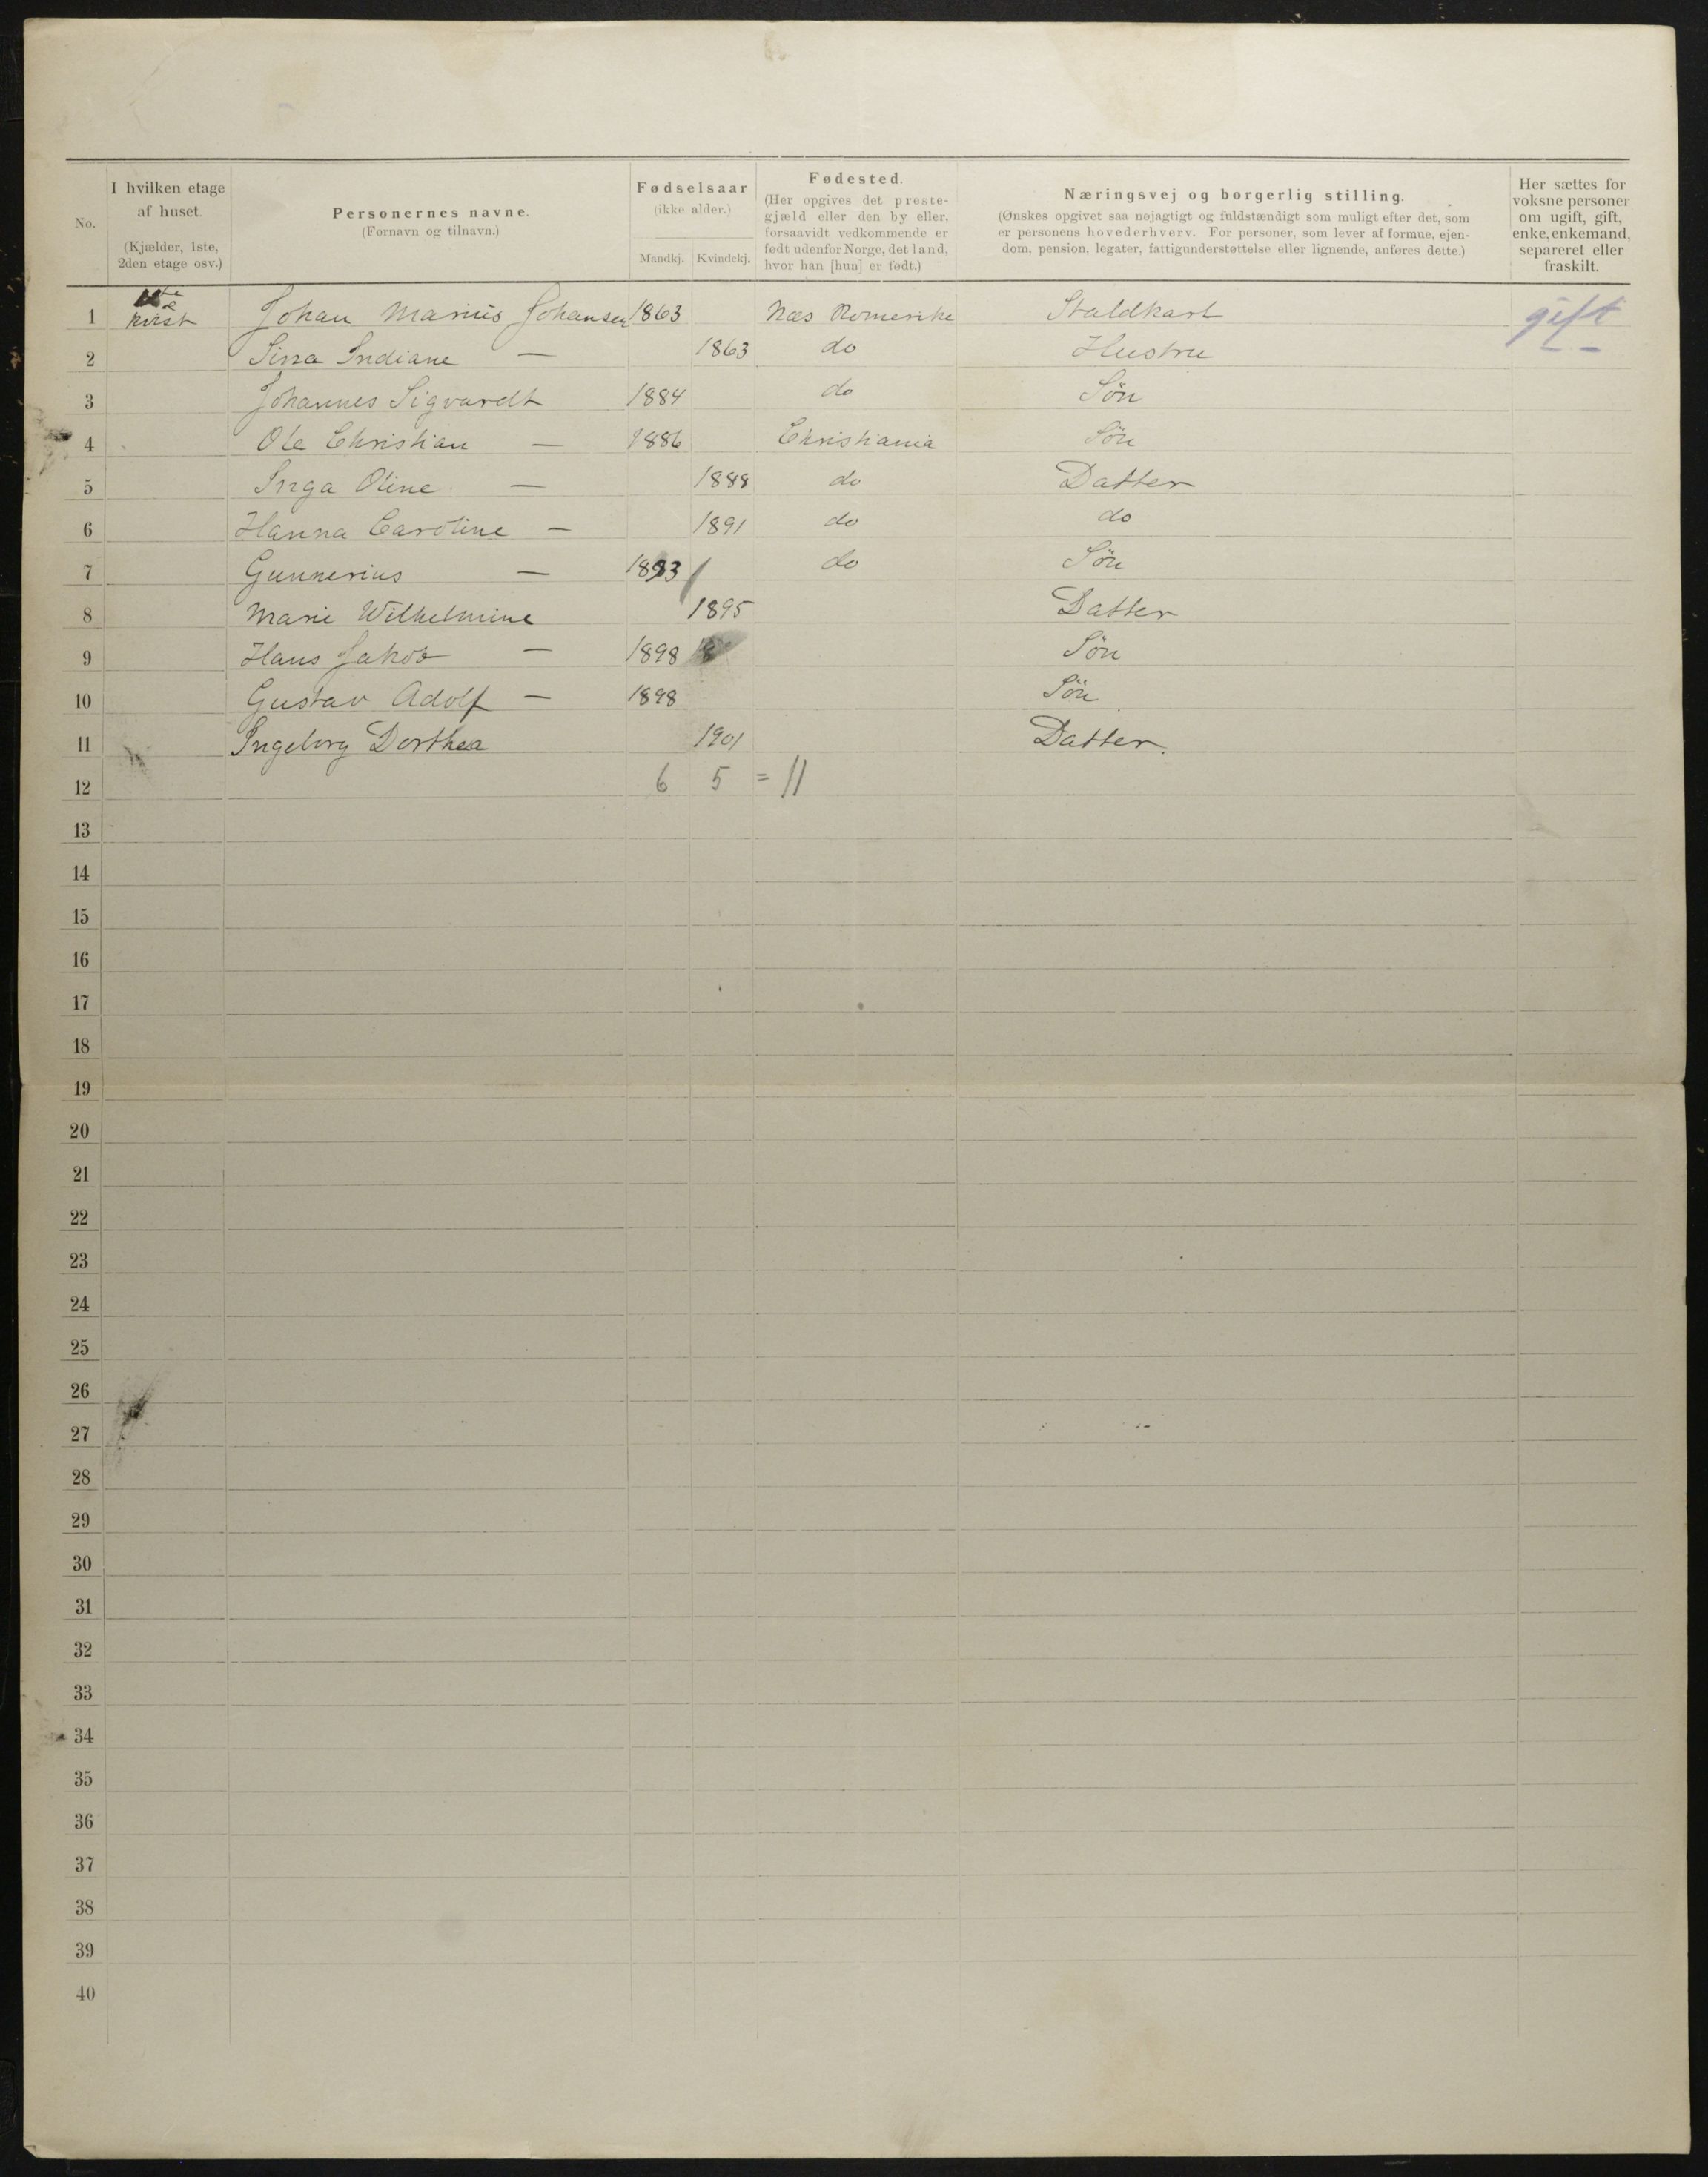 No.
I hvilken etage af huset.
(Kjælder, 1ste, 2den etage osv.)
Personernes navne.
(Fornavn og tilnavn.)
Fødselsaar
(ikke alder.)
Mandkj. Kvindekj.
Fødested.
(Her opgives det prestegjæld eller den by eller, forsaavidt vedkommende er født udenfor Norge, det land, hvor han [hun] er født.)
Næringsvej og borgerlig stilling.
(Ønskes opgivet saa nøjagtigt og fuldstændigt som muligt efter det, som er personens hovederhverv. For personer, som lever af formue, ejendom, pension, legater, fattigunderstøttelse eller lignende, anføres dette.)
Her sættes for voksne personer om ugift, gift, enke, enkemand, separeret eller fraskilt.
1 Kvist Johan Marius Johansen 1863 Næs Romerike Staldkarl gift
2 Sina Indiane — 1863 do Hustru —
3 Johannes Sigvardt 1884 do Søn
4 Ole Christian — 1886 Christiania Søn
5 Inga Oline — 1888 do Datter
6 Hanna Caroline — 1891 do do
7 Gunnerius — 1893 do Søn
8 Marie Wilhelmine 1895 Datter
9 Hans Jakob — 1898 Søn
10 Gustav Adolf — 1898 Søn
11 Ingeborg Dorthea 1901 Datter.
12 6 5 = 11
13
14
15
16
17
18
19
20
21
22
23
24
25
26
27
28
29
30
31
32
33
34
35
36
37
38
39
40